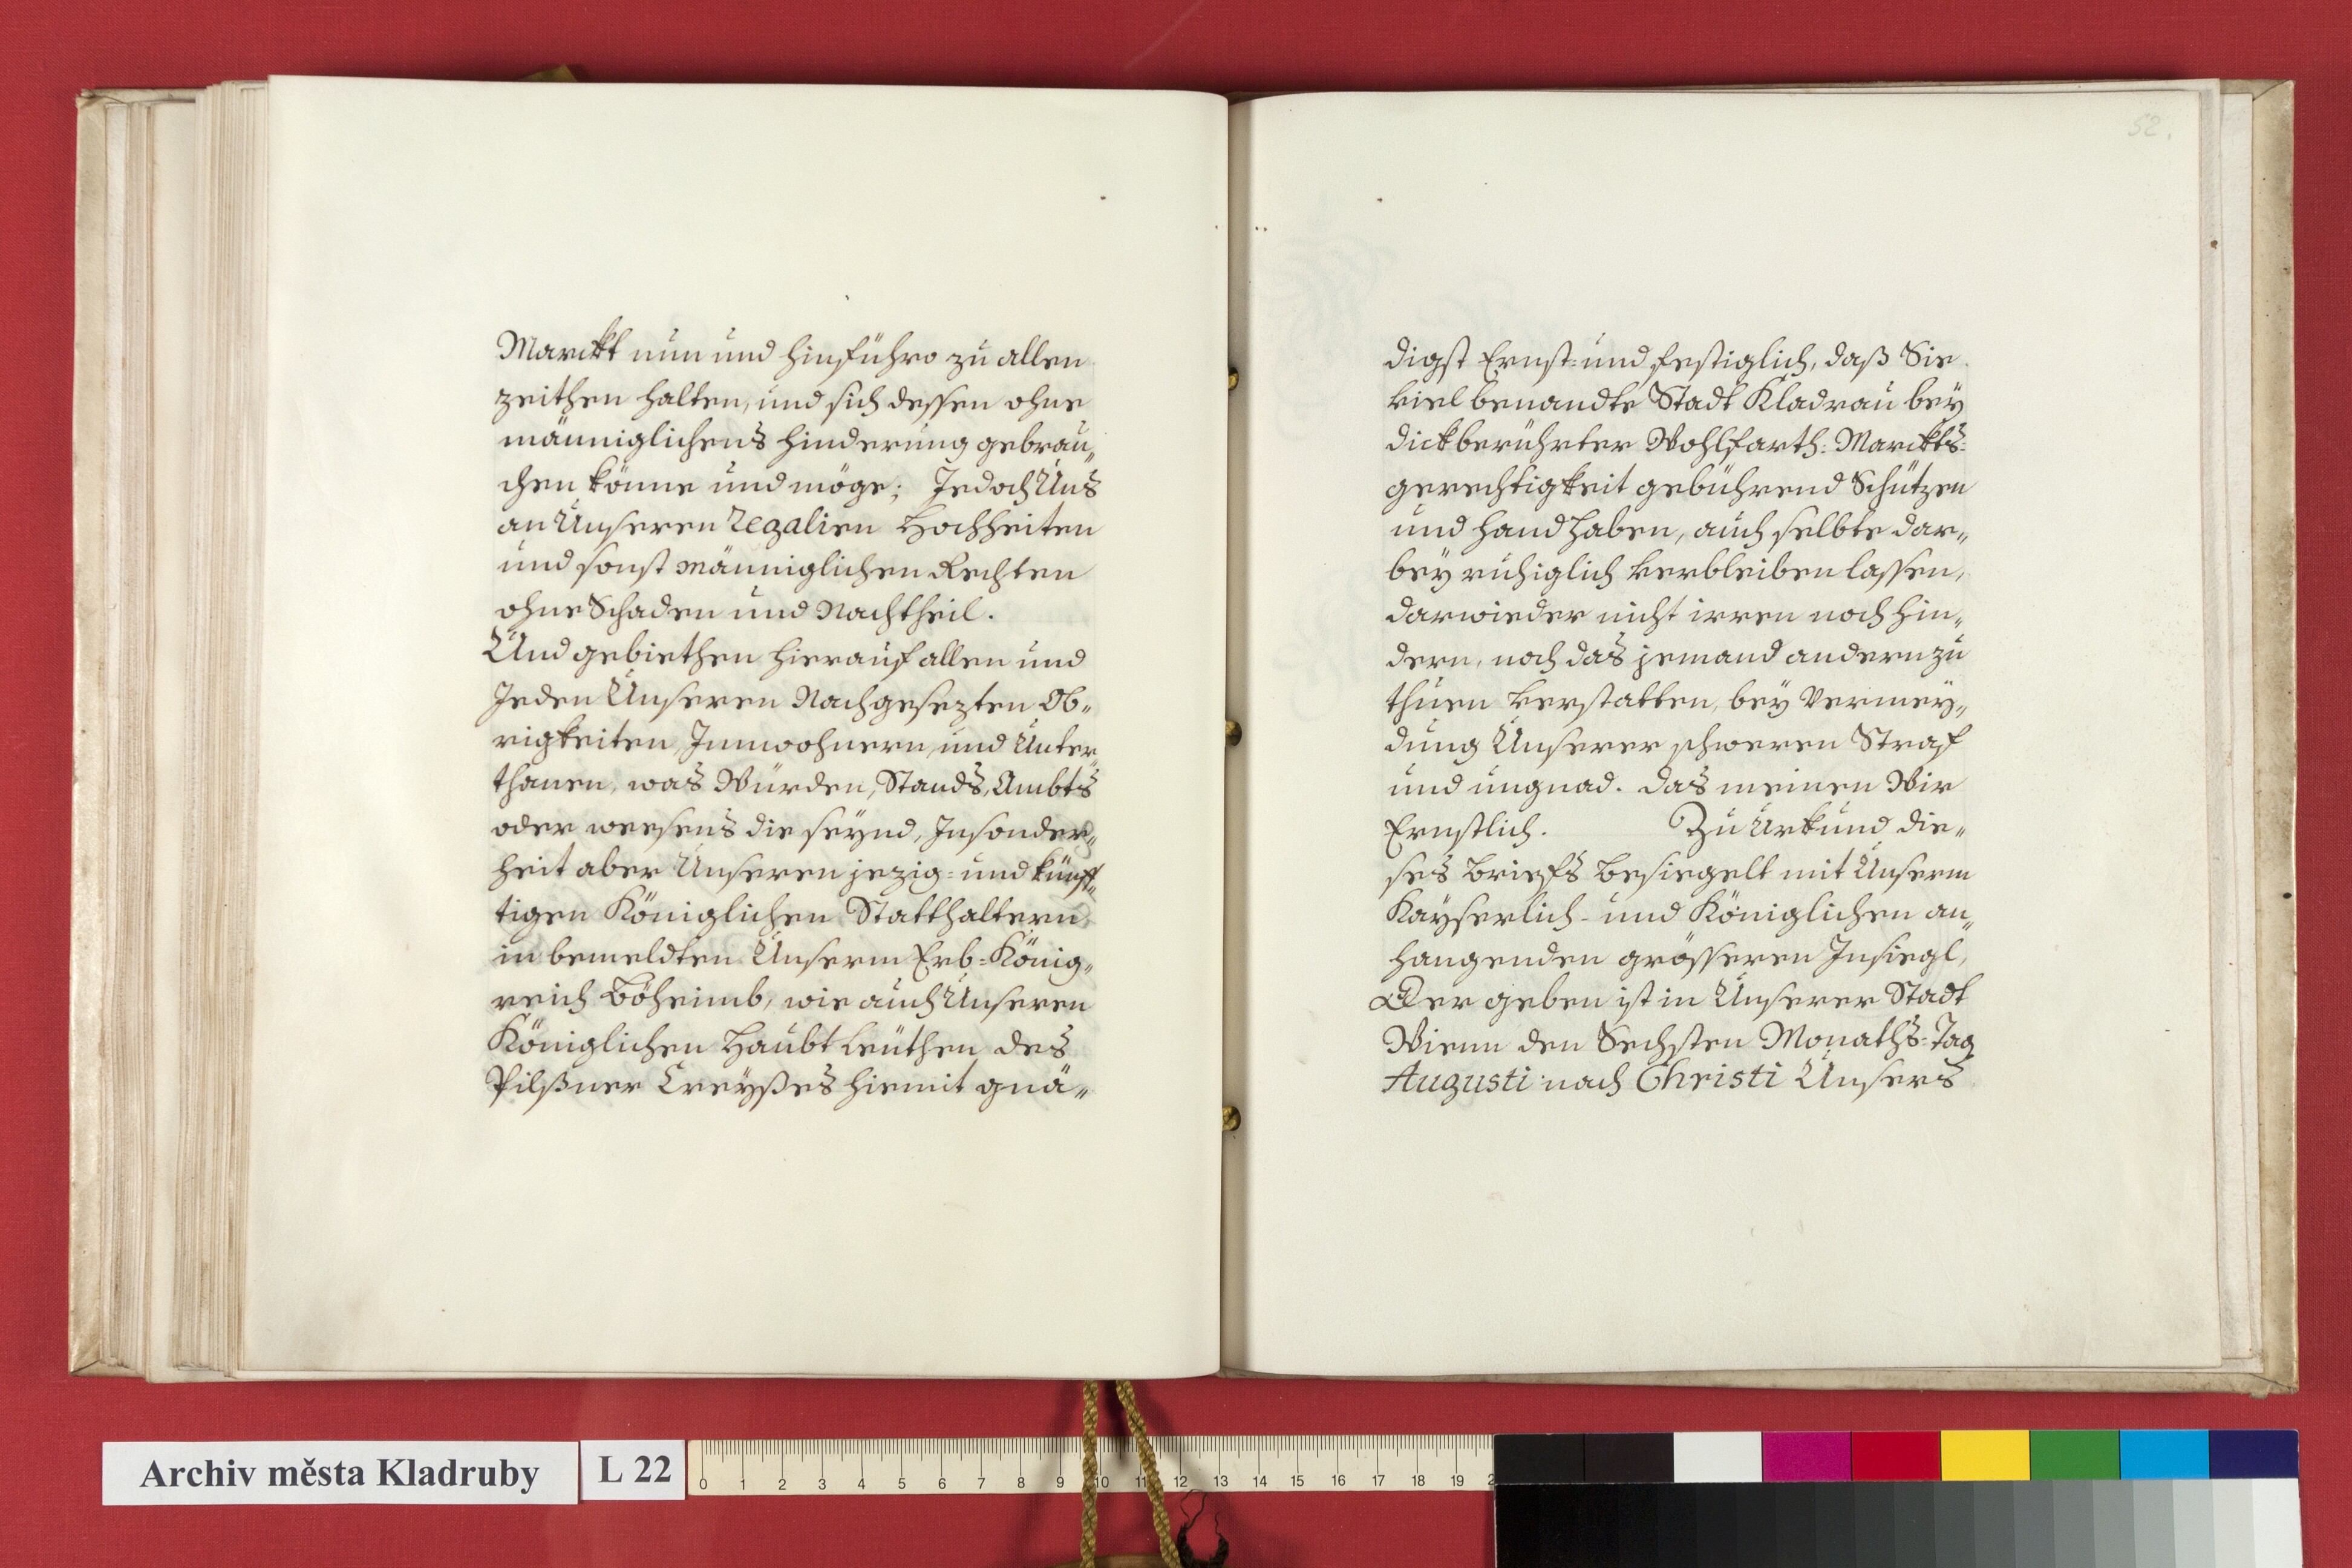 Marckt nun und hinführo zu allen
zeithen halten, und sich dessen ohne
männiglichens hinderung gebrau„
chen könne und möge; Jedoch Uns
an Unseren Regalien Hochheiten
und sonst männiglichen Rechten
ohne Schaden und Nachtheil.
Und gebiethen hierauf allen und
Jeden Unseren Nachgesezten Ob„
rigkeiten, Innwohnern, und Unter„
thanen, was Würden, Stands, Ambts
oder weesens die seynd, Insonder„
heit aber Unseren jezig- und künff„
tigen Königlichen Statthaltern
in bemeldten Unserm Erb-König„
reich Böheimb, wie auch Unseren
Königlichen Haubtleuthen des
Pilßner Creyßes hiemit gnä„
52.
digst Ernst- und festiglich, daß Sie
viel benandte Stadt Kladrau bey
dickberührter Wohlfarth: Marckts-
gerechtigkeit gebührend Schützen
und handhaben, auch selbte dar„
bey ruhiglich verbleiben lassen,
darwieder nicht irren noch hin„
dern, noch das jemand andern zu
thuen verstatten, bey Vermey„
dung Unserer schweren Straf
und ungnad. das meinen Wir
Ernstlich. Zu Urkund die„
ses briefs besiegelt mit Unserm
Kayserlich- und Königlichen an„
hangenden grösseren Insiegl,
Der geben ist in Unserer Stadt
Wienn den Sechsten Monaths-Tag
Augusti nach Christi Unsers
Archiv města Kladruby L 22
0 1 2 3 4 5 6 7 8 9 10 11 12 13 14 15 16 17 18 19 2